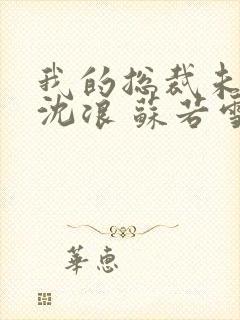 我的总裁未
沈浪 蘇若雪
華惠